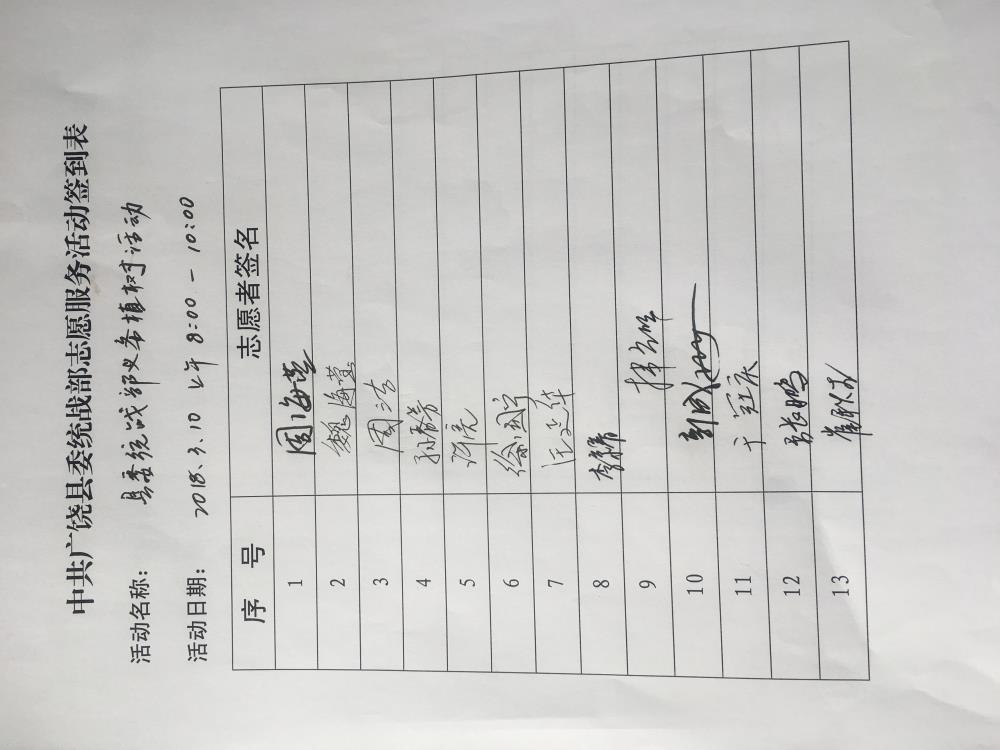 中共广饶县委统战部志愿服务活动签到表
活动名称： 县委统战部义务植树活动
活动日期： 2018.3.10 上午 8:00 - 10:00
序 号 志愿者签名
1 周海莹
2 魏海莹
3 周洁
4 孙秀芳
5 许亮
6 徐国宁
7 汪文华
8 李静
9
10
11 于冠庆
12 张鹏
13